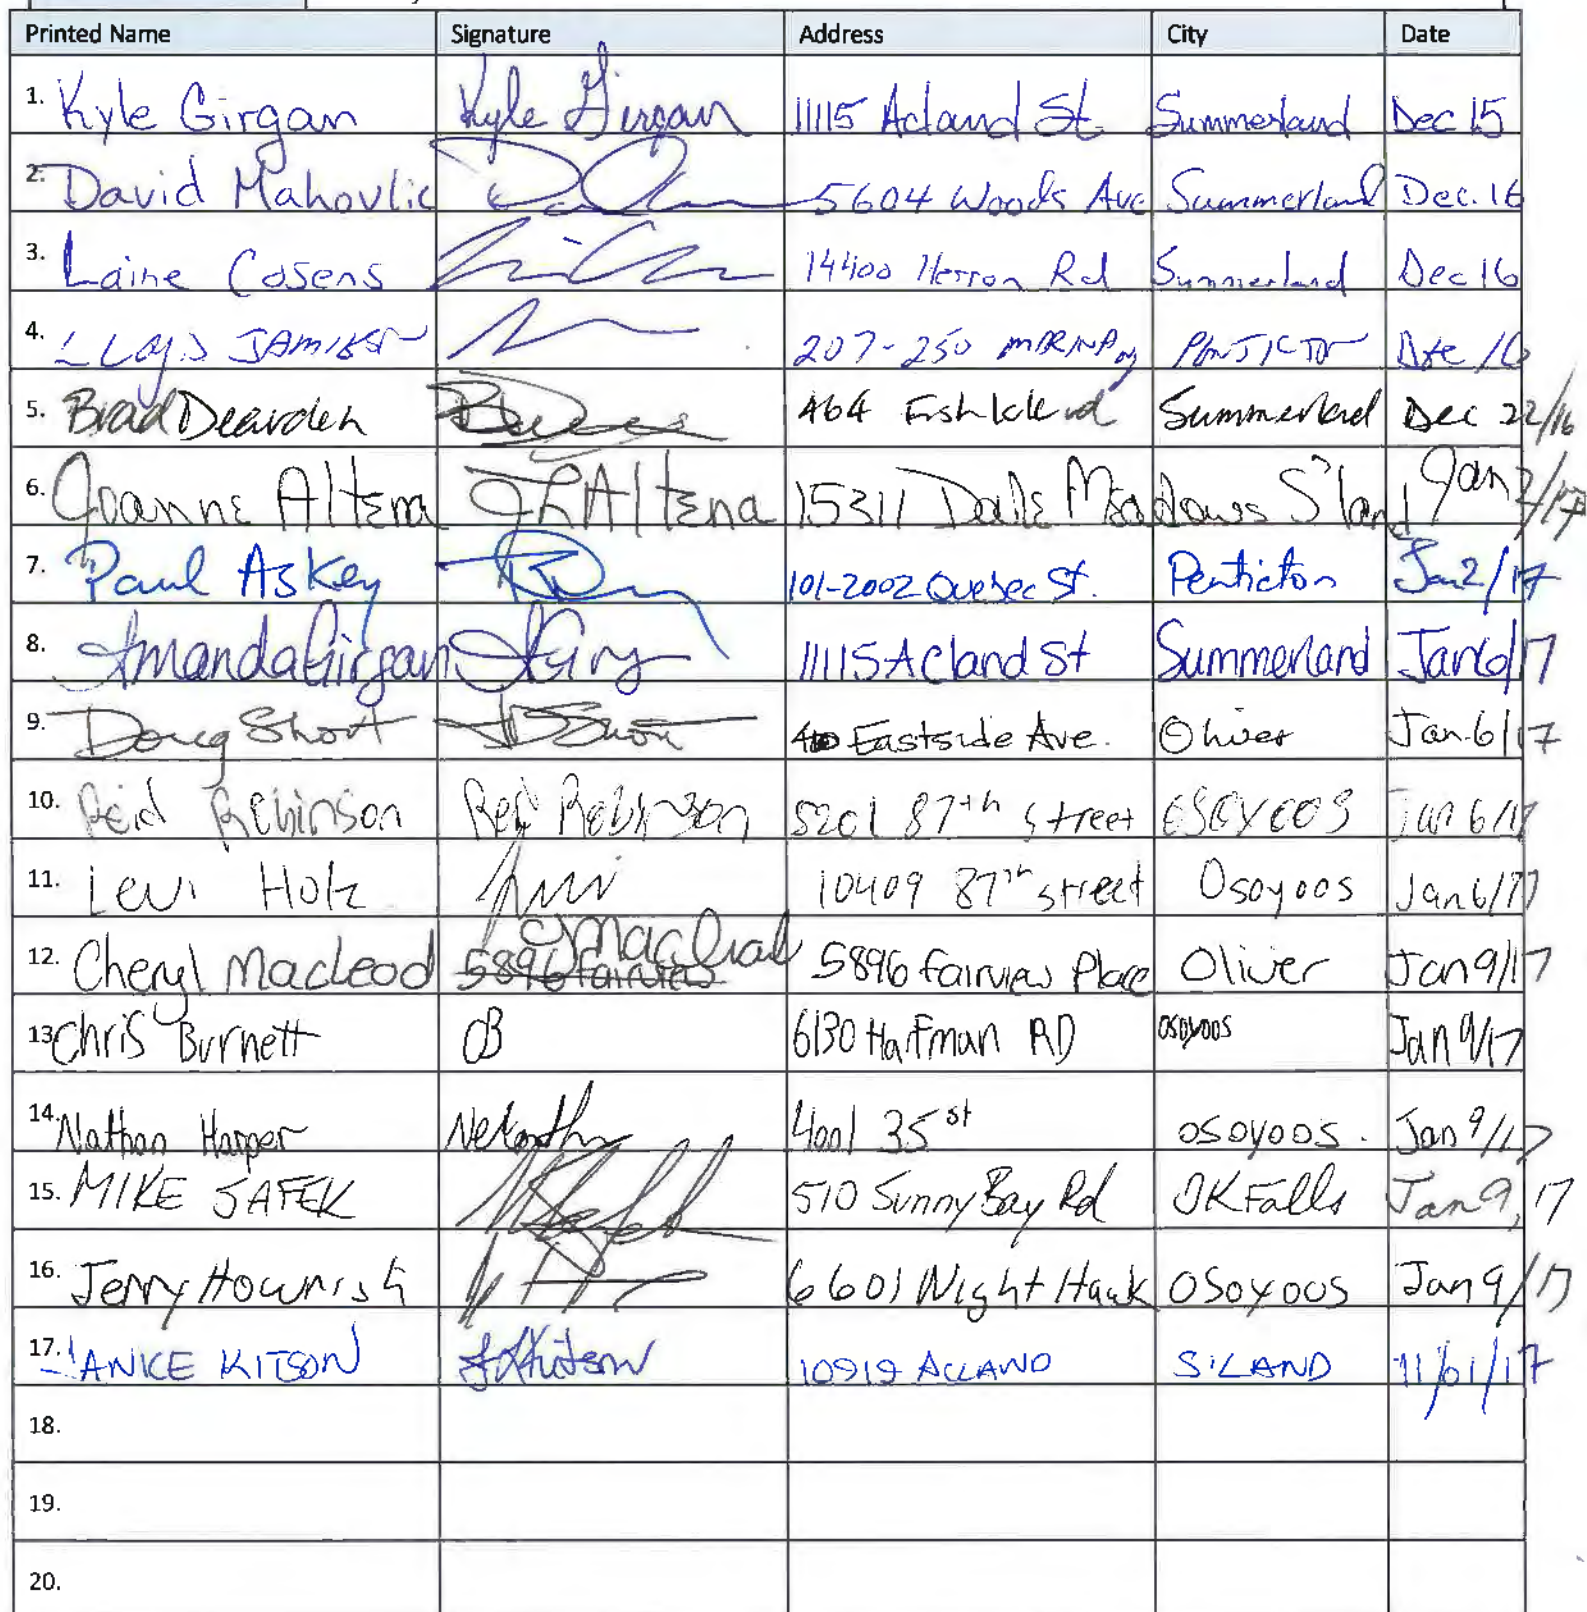 Printed Name Signature Address City Date
1. Kyle Girgan Kyle Girgan 11115 Acland St. Summerland Dec 15
2. David Mahovlic 5604 Woods Ave Summerland Dec. 16
3. Laine Cosens 14400 Herron Rd Summerland Dec 16
4. 207-250
5. Brad Dearden 464 Summerland Dec 22/16
6. Joanne Altena JLAltena 15311 Dale Meadows S'land Jan 2/17
7. Paul Askey 101-2002 Quebec St. Penticton Jan 2/17
8. Amanda Girgan 11115 Acland St Summerland Jan 6/17
9. Doug Short DShort Eastside Ave. Oliver Jan 6/17
10. Reid Robinson Reid Robinson 5201 87th street osoyoos Jan 6/17
11. Levi Holz Levi 10409 87th street Osoyoos Jan 6/17
12. Cheryl Macleod CMacleod 5896 fairview 5896 fairview Place Oliver Jan 9/17
13. Chris Burnett CB 6130 Hartman RD osoyoos Jan 9/17
14. Nathan Harper 4001 35st osoyoos. Jan 9/17
15. MIKE SAFEK 510 Sunny Bay Rd OK Falls Jan 9, 17
16. Jerry 6601 Night Hawk Osoyoos Jan 9/17
17. JANICE KITSON JKitson 10919 ACLAND S'LAND 11/01/17
18.
19.
20.